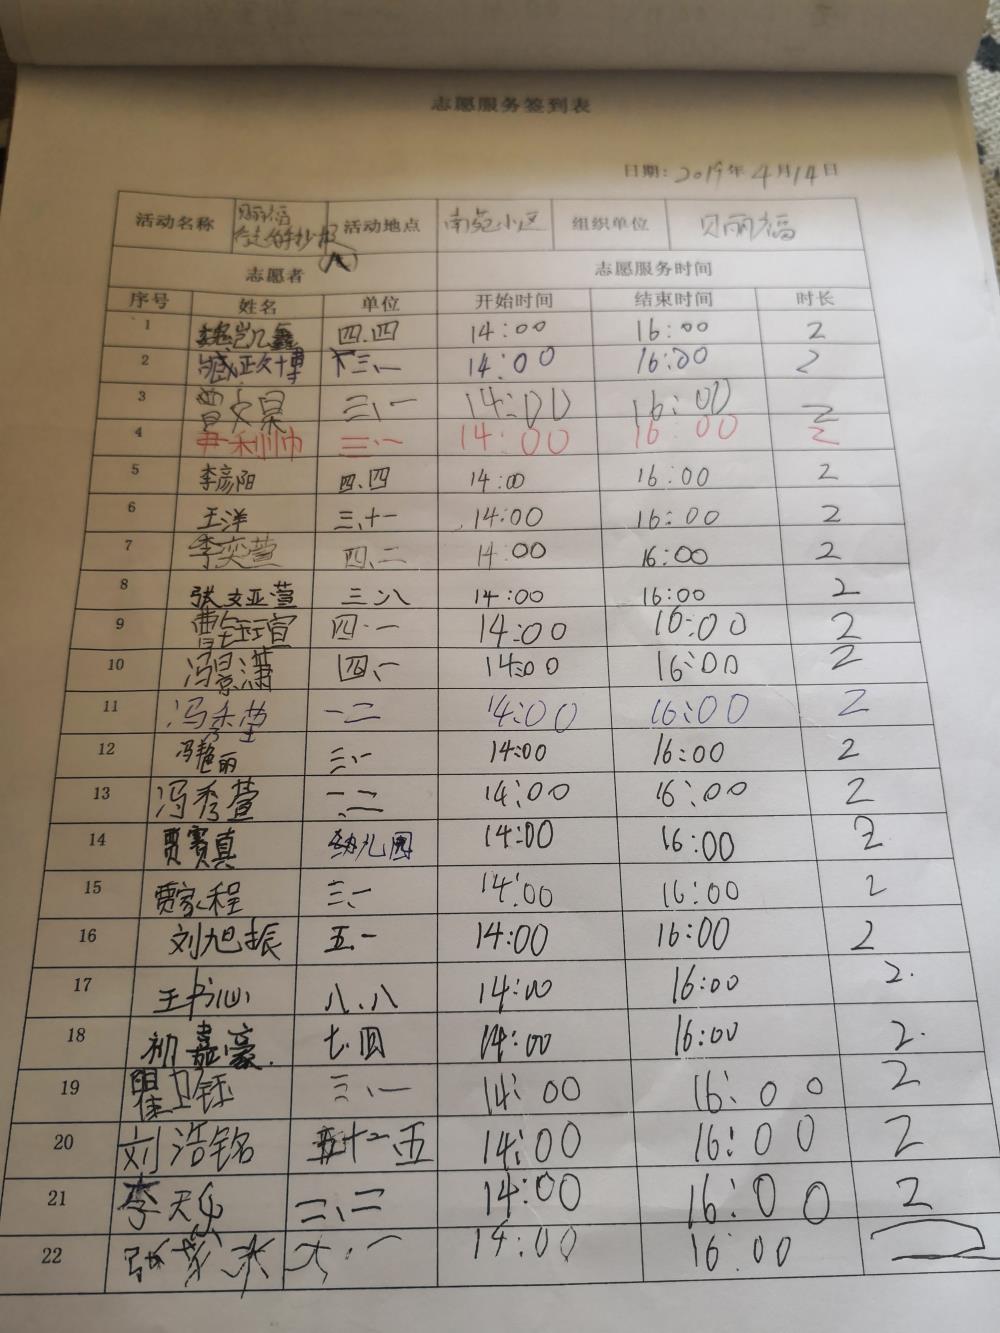 志愿服务签到表
日期：2019年4月14日
活动名称 贝丽福 手抄报(八) 活动地点 南苑小区 组织单位 贝丽福
志愿者 志愿服务时间
序号 姓名 单位 开始时间 结束时间 时长
1 魏凯鑫 四.四 14:00 16:00 2
2 臧政博 三.一 14:00 16:00 2
3 曹文昊 三.一 14:00 16:00 2
4 三.一 14:00 16:00 2
5 李彦阳 四.四 14:00 16:00 2
6 王洋 三.十一 14:00 16:00 2
7 李奕萱 四.二 14:00 16:00 2
8 张文亚萱 三.八 14:00 16:00 2
9 曹钰瑄 四.一 14:00 16:00 2
10 冯景潇 四.一 14:00 16:00 2
11 冯秀莹 一二 14:00 16:00 2
12 冯艳丽 三.一 14:00 16:00 2
13 冯秀萱 二.二 14:00 16:00 2
14 贾赛真 幼儿园 14:00 16:00 2
15 贾家程 三.一 14:00 16:00 2
16 刘旭振 五.一 14:00 16:00 2
17 王书沁 八.八 14:00 16:00 2.
18 初嘉豪. 七.四 14:00 16:00 2.
19 瞿卫钰 三.一 14:00 16:00 2
20 刘浩铭 五十一五 14:00 16:00 2
21 李天 二、二 14:00 16:00 2
22 张 六.一 14:00 16:00